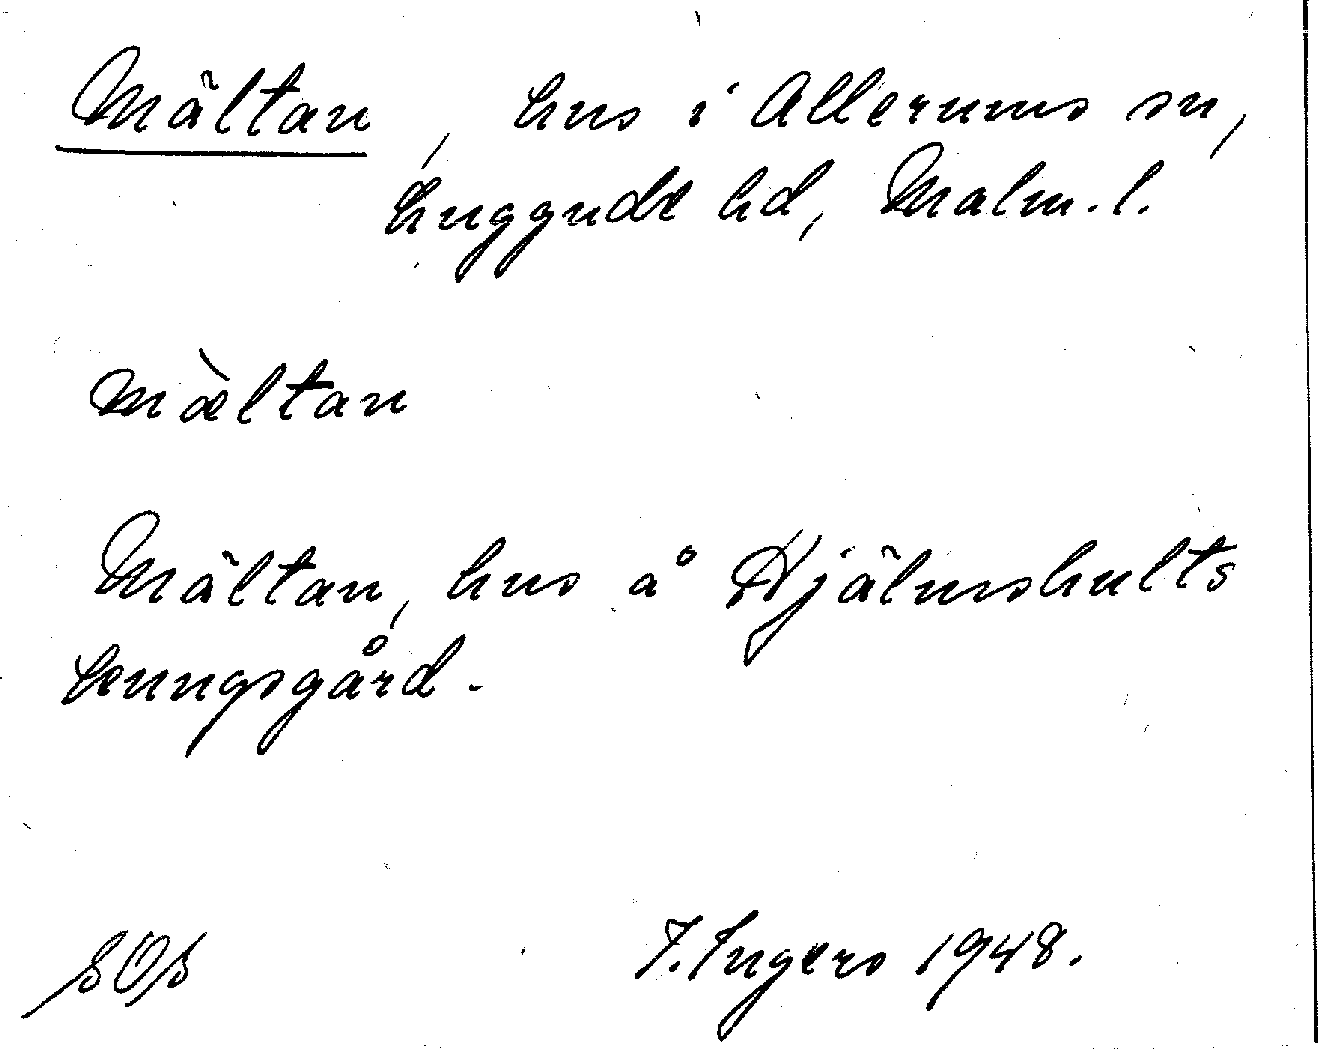 Mältan, hus i Allerums sn,
Luggude hd, Malm. l.
mæ̀ltan
Mältan, hus å Hjälmshults
kungsgård.
I. Ingers 1948.